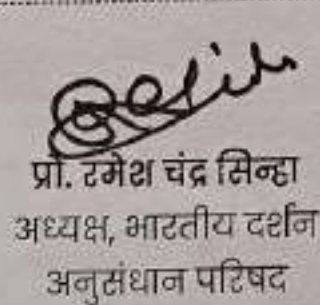 प्रो. रमेश चंद्र सिन्हा
अध्यक्ष, भारतीय दर्शन
अनुसंधान परिषद